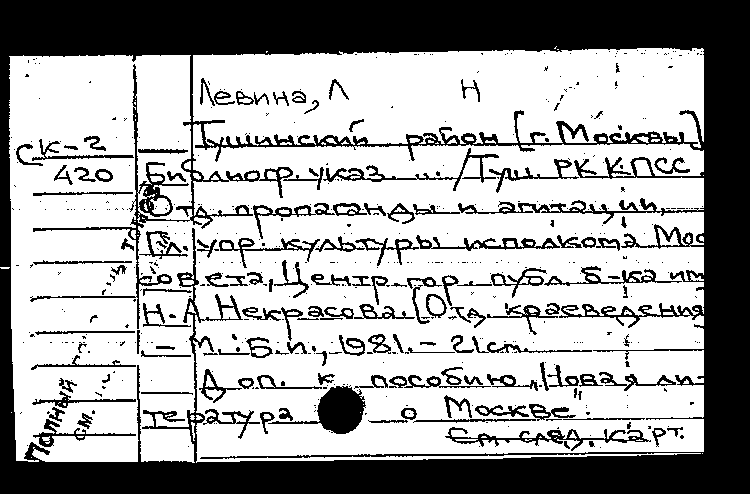 Левина, Л Н
Тушинский район [г. Москвы]
СК-2
420
Библиогр. указ. ... /Туш. РК КПСС.
Отд. пропаганды и агитации,
Гл. упр. культуры исполкома Мос
совета, Центр. гор. публ. б-ка им
Н.А. Некрасова. [Отд. краеведения
- М. : Б.и., 1981. - 21 см.
Доп. к пособию „Новая ли-
тература о Москве".
См. след. карт.
Полный
см.